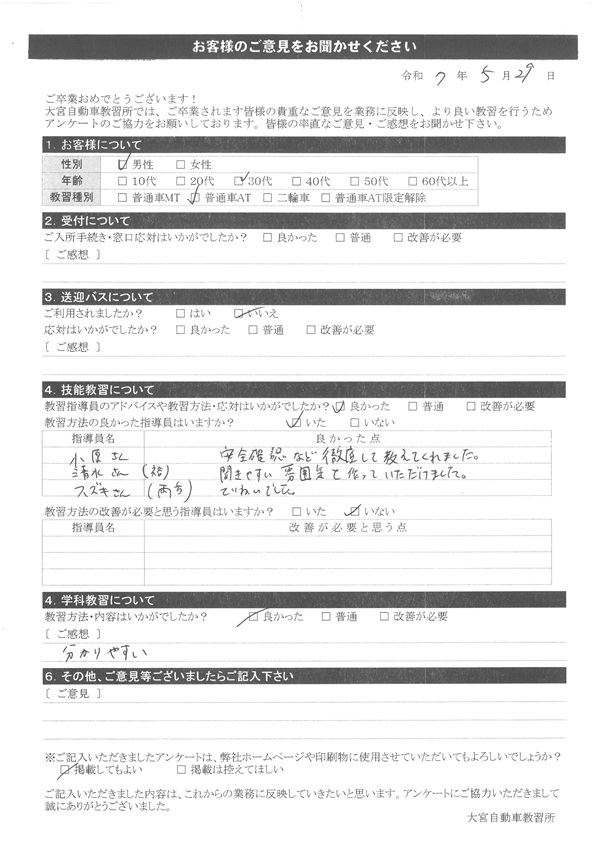 お客様のご意見をお聞かせください
令和 7 年 5 月 29 日
ご卒業おめでとうございます！
大宮自動車教習所では、ご卒業されます皆様の貴重なご意見を業務に反映し、より良い教習を行うため
アンケートのご協力をお願いしております。皆様の率直なご意見・ご感想をお聞かせ下さい。
1. お客様について
性別 ☑男性 □女性
年齢 □10代 □20代 ☑30代 □40代 □50代 □60代以上
教習種別 □普通車MT ☑普通車AT □二輪車 □普通車AT限定解除
2. 受付について
ご入所手続き・窓口応対はいかがでしたか？ □良かった □普通 □改善が必要
〔 ご感想 〕
3. 送迎バスについて
ご利用されましたか？ □はい ☑いいえ
応対はいかがでしたか？ □良かった □普通 □改善が必要
〔 ご感想 〕
4. 技能教習について
教習指導員のアドバイスや教習方法・応対はいかがでしたか？ ☑良かった □普通 □改善が必要
教習方法の良かった指導員はいますか？ ☑いた □いない
指導員名 良かった点
小原さん 安全確認など徹底して教えてくれました。
清水さん 聞きやすい雰囲気で作っていただけました。
スズキさん (両方) ていねいでした
教習方法の改善が必要と思う指導員はいますか？ □いた ☑いない
指導員名 改善が必要と思う点
4. 学科教習について
教習方法・内容はいかがでしたか？ ☑良かった □普通 □改善が必要
〔 ご感想 〕
分かりやすい
6. その他、ご意見等ございましたらご記入下さい
〔 ご意見 〕
※ご記入いただきましたアンケートは、弊社ホームページや印刷物に使用させていただいてもよろしいでしょうか？
☑掲載してもよい □掲載は控えてほしい
ご記入いただきました内容は、これからの業務に反映していきたいと思います。アンケートにご協力いただきまして
誠にありがとうございました。
大宮自動車教習所